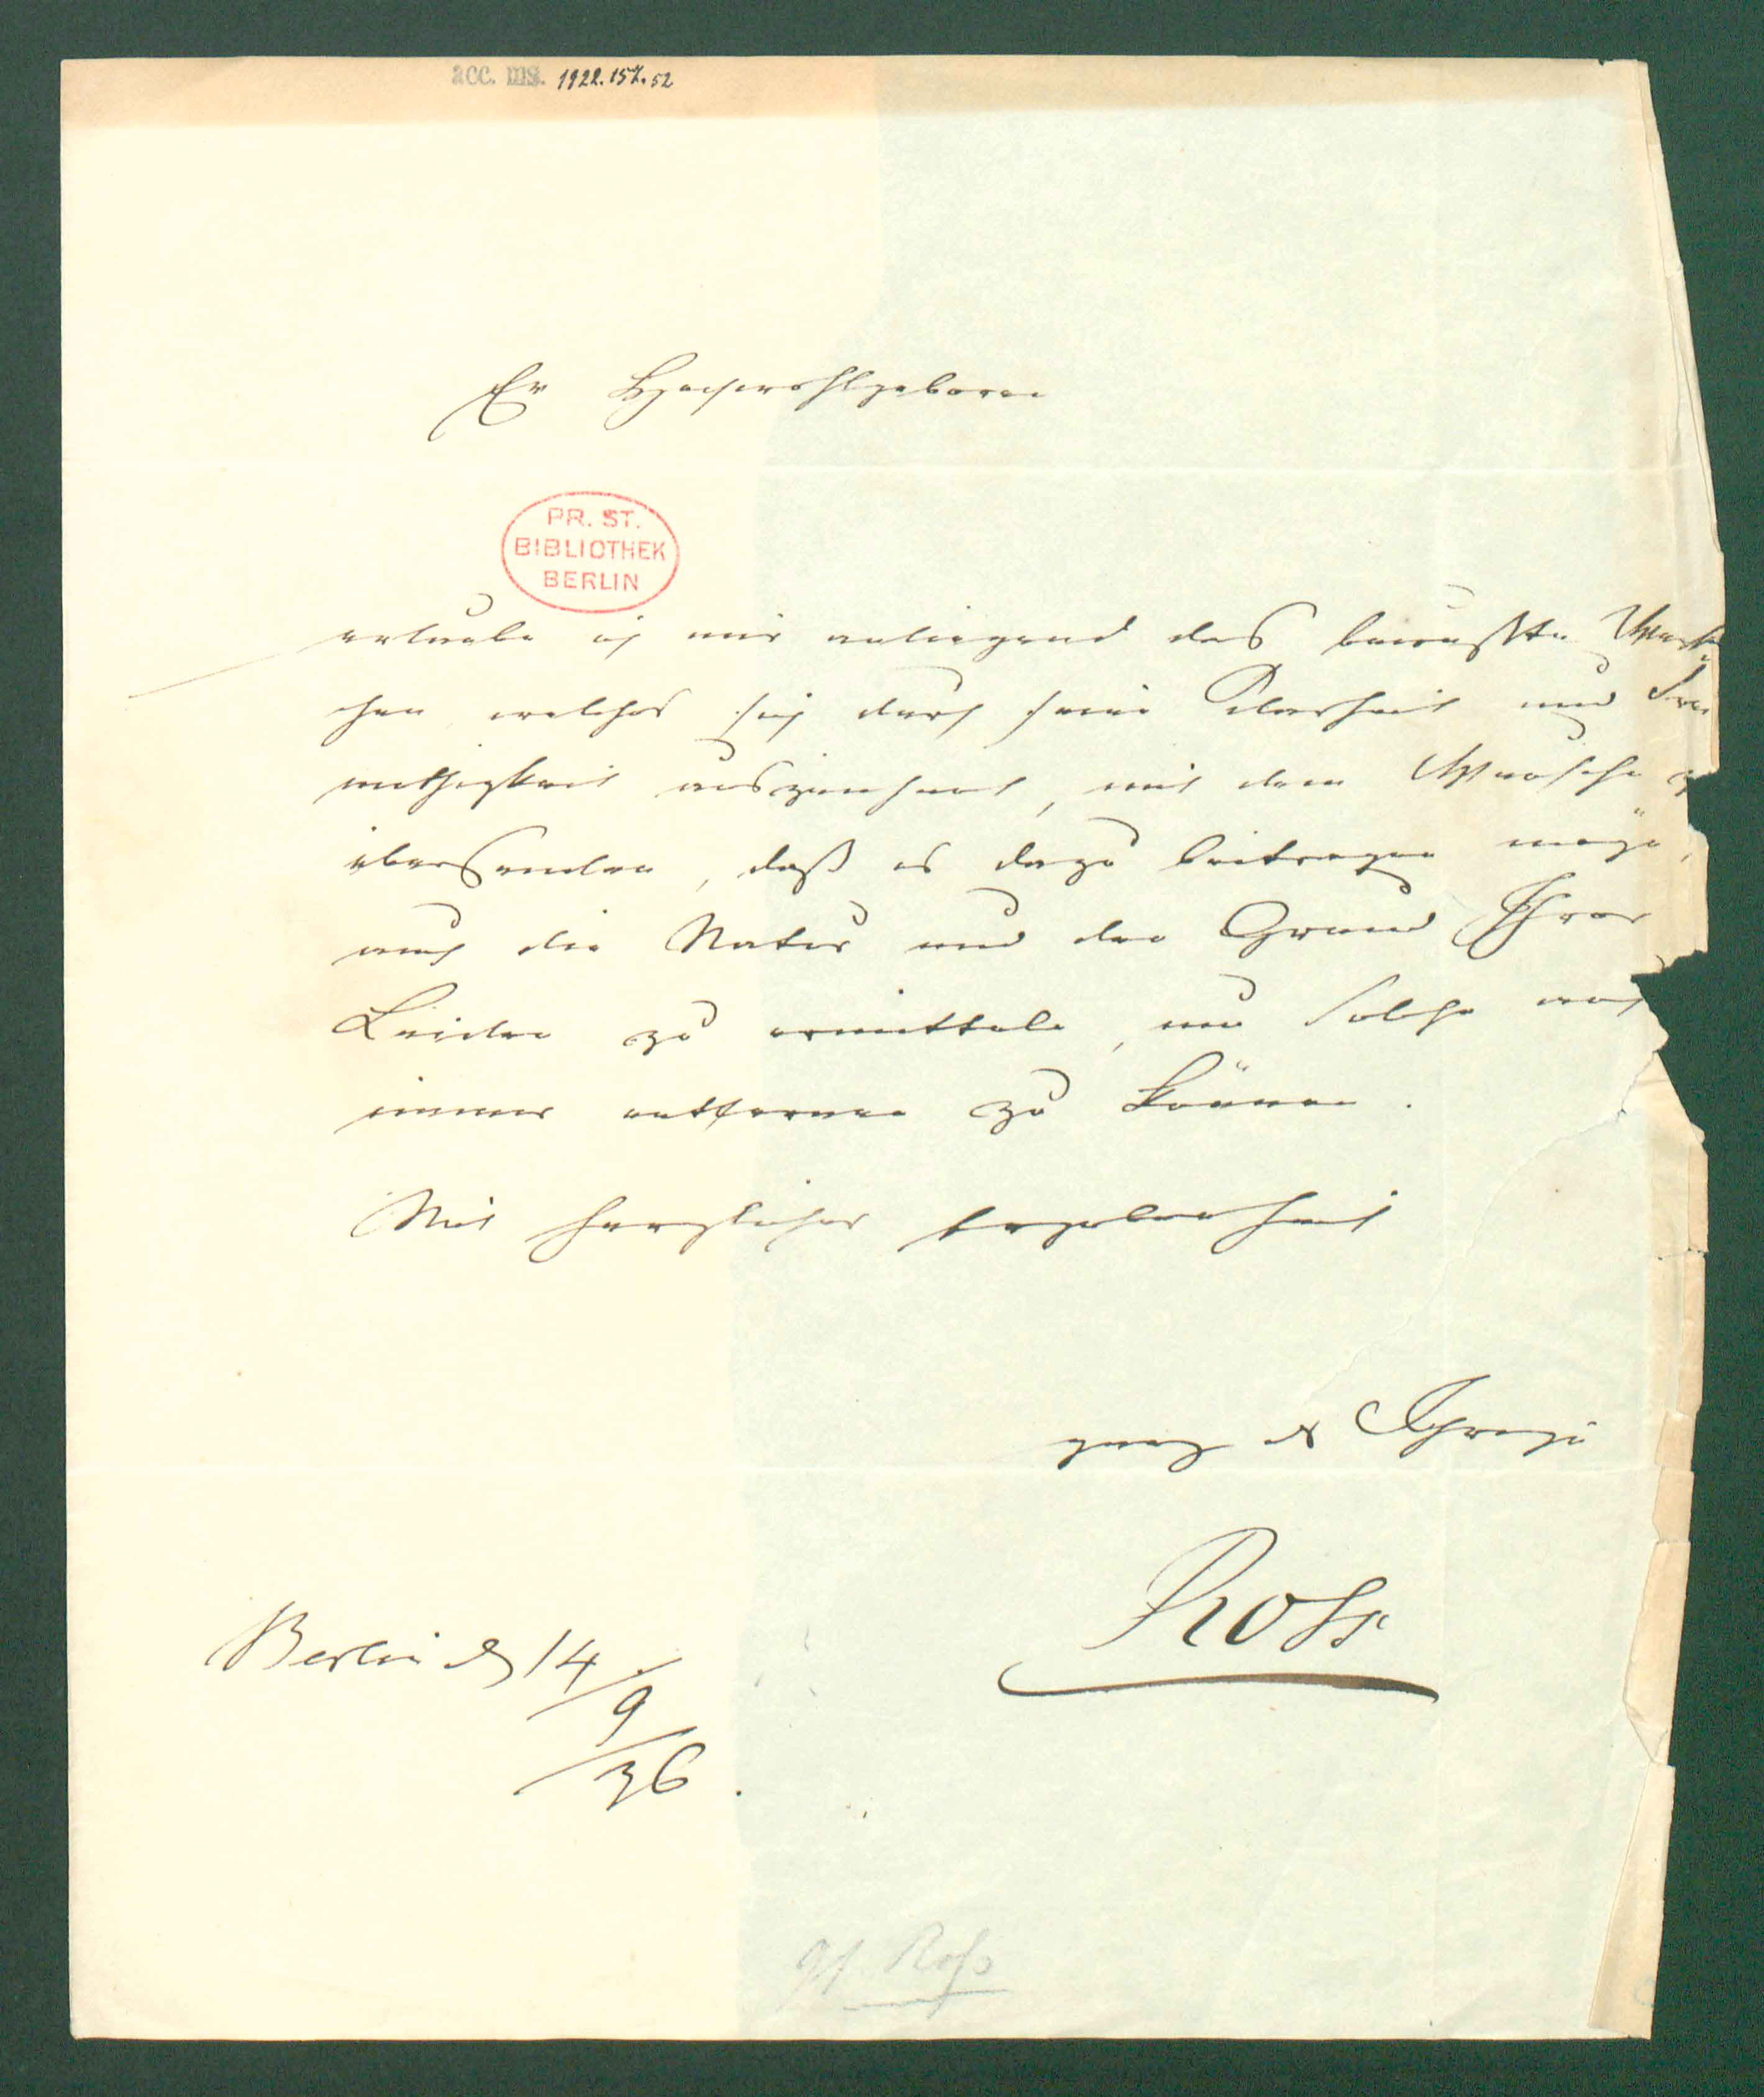 acc. ms. 1922.157.52
Ew Hochwohlgeboren
PR. ST.
BIBLIOTHEK
BERLIN
erlaube ich mir anliegend das bewußte Werk
chen, welches sich durch seine Klarheit und Frei
müthigkeit auszeichnet, mit dem Wunsche z
übersenden, daß es dazu beitragen möge,
auch die Natur und den Grund Ihrer
Leiden zu ermitteln, um solche auf
immer entfernen zu können.
Mit herzlicher Ergebenheit
ganz der Ihrige
Ross
Berlin d 14/9/36.
Ross